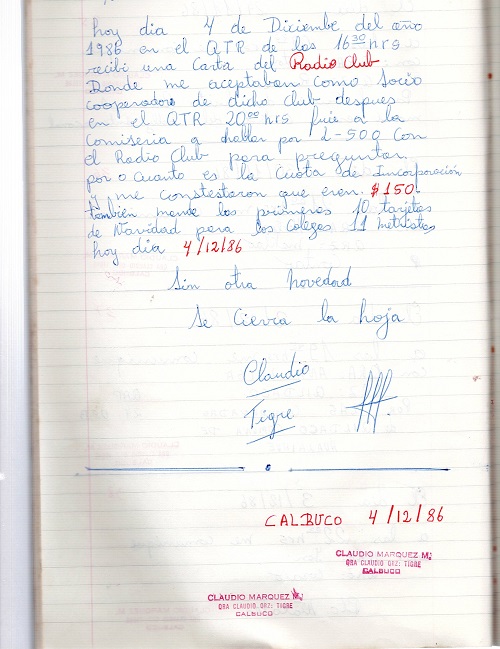 hoy dia 4 de Diciembre del año
1986 en el QTR de las 16 30 hrs
recibi una Carta del Radio Club
Donde me aceptaban como Socio
cooperador de dicho Club despues
en el QTR 20 00 hrs fui a la
Comiseria a hablar por 2-500 con
el Radio Club para preguntar
por o Cuanto es la Cuota de Incorporación
y me constestaron que eran $150.
también mande las primeras 10 tarjetas
de Navidad para los Colegas 11 metristas
hoy dia 4/12/86
Sin otra novedad
Se Cierra la hoja
Claudio
Tigre
CALBUCO 4/12/86
CLAUDIO MARQUEZ M.
QRA CLAUDIO QRZ: TIGRE
CALBUCO
CLAUDIO MARQUEZ M.
QRA CLAUDIO QRZ: TIGRE
CALBUCO